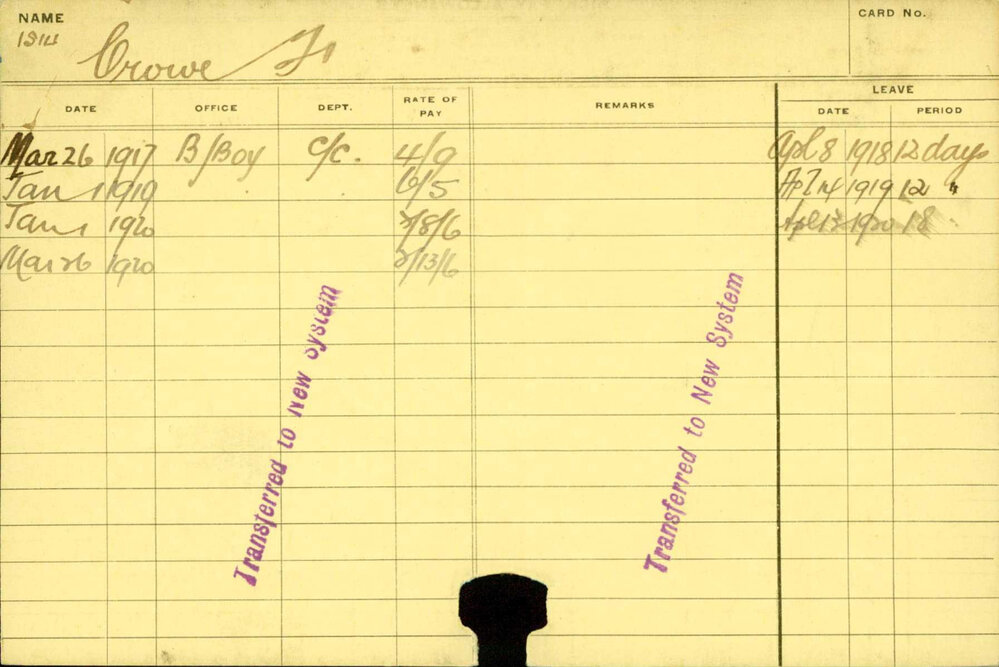 NAME
CARD No.
1514
Crowe F
LEAVE
DATE OFFICE DEPT. RATE OF PAY REMARKS DATE PERIOD
Mar 26 1917 B/Boy C/C. 4/9 Apl 8 1918 12 days
Jan 1 1919 6/5 Apl 14 1919 12 "
Jan 1 1920 /8/6 Apl 12 1920 18
Mar 26 1920 /13/6
Transferred to New System
Transferred to New System